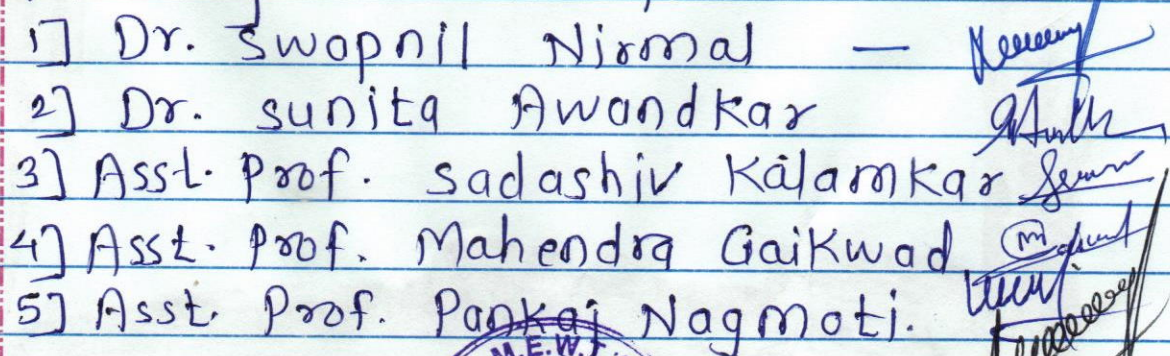 1] Dr. Swapnil Nirmal —
2] Dr. sunita Awandkar
3] Asst. Prof. Sadashiv Kalamkar
4] Asst. Prof. Mahendra Gaikwad
5] Asst. Prof. Pankaj Nagmoti.
M.E.W.